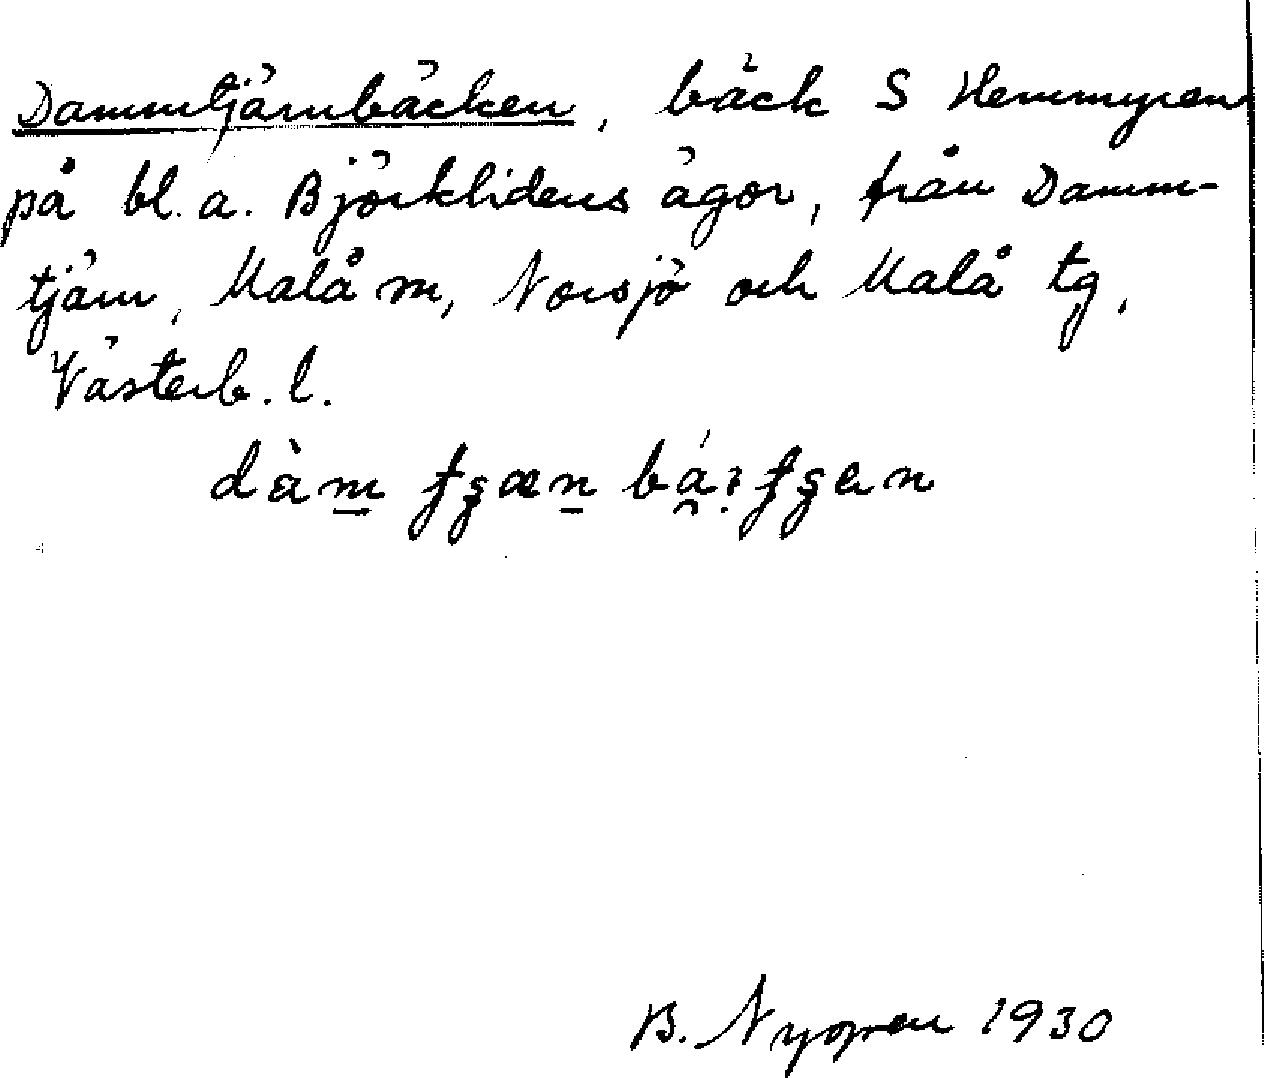 Dammtjärnbäcken, bäck S Hemmyren
på bl.a. Björklidens ägor, från Damm-
tjärn, Malå m, Norsjö och Malå tg,
Västerb. l.
B. Nygren 1930